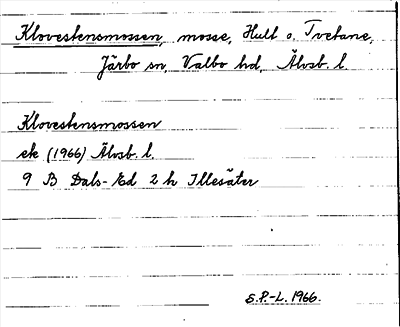 Klovestensmossen, mosse, Hult o. Tvetane,
Järbo sn, Valbo hd, Älvsb. l.
Klovestensmossen
ek (1966) Älvsb. l.
9 B Dals-Ed 2 h Illesäter
S.P.-L. 1966.